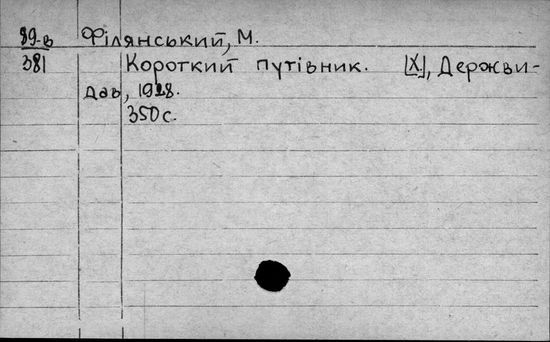 89-в Філянський, М.
381 Короткий путівник. [Х], Держви-
дав, 1928.
350 с.